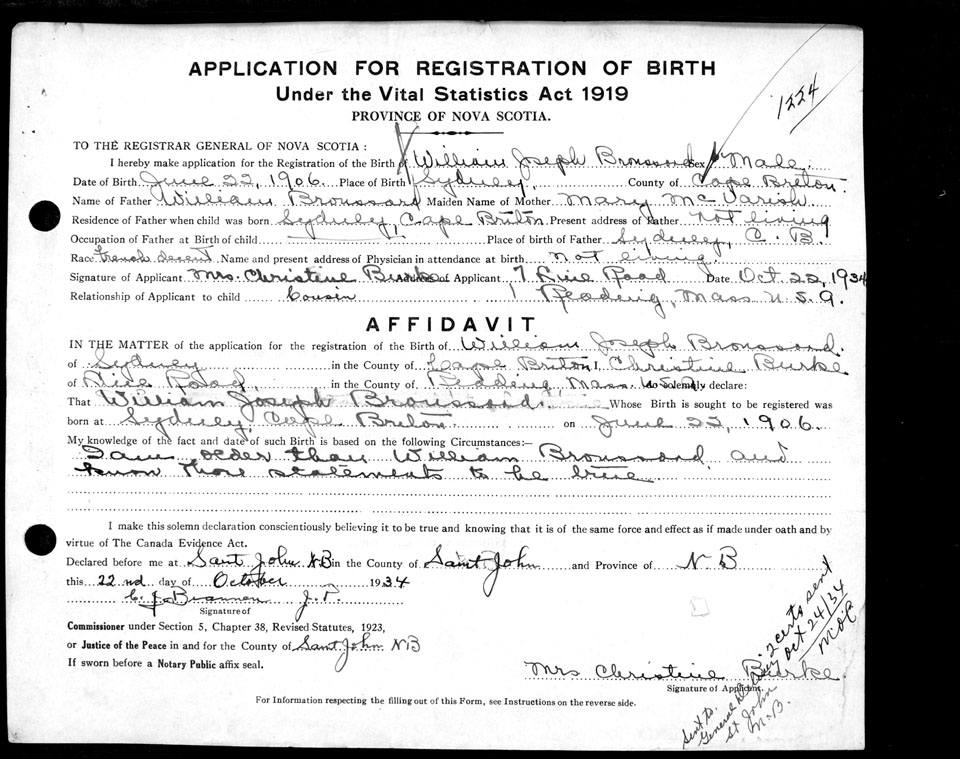 APPLICATION FOR REGISTRATION OF BIRTH
Under the Vital Statistics Act 1919
PROVINCE OF NOVA SCOTIA.
1224
TO THE REGISTRAR GENERAL OF NOVA SCOTIA :
I hereby make application for the Registration of the Birth of William Joseph Broussard Sex Male.
Date of Birth June 22, 1906 Place of Birth Sydney. County of Cape Breton.
Name of Father William Broussard Maiden Name of Mother Mary Mc Varish
Residence of Father when child was born Sydney, Cape Breton Present address of Father not living
Occupation of Father at Birth of child Place of birth of Father Sydney, C. B.
Race french descent Name and present address of Physician in attendance at birth not living.
Signature of Applicant Mrs. Christine Burke Address of Applicant 7 Line Road Date Oct 22, 1934
Relationship of Applicant to child Cousin Reading, Mass U. S. A.
AFFIDAVIT
IN THE MATTER of the application for the registration of the Birth of William Joseph Broussard.
of Sydney in the County of Cape Breton I, Christine Burke
of Line Road, in the County of Reading Mass. U.S.A. do solemnly declare:
That William Joseph Broussard. Whose Birth is sought to be registered was
born at Sydney, Cape Breton on June 22, 1906.
My knowledge of the fact and date of such Birth is based on the following Circumstances:—
I am older than William Broussard, and
know those statements to be true
I make this solemn declaration conscientiously believing it to be true and knowing that it is of the same force and effect as if made under oath and by
virtue of The Canada Evidence Act.
Declared before me at Saint John N.B in the County of Saint John and Province of N B
this 22nd day of October 1934
C. J. Brannen J. P.
Signature of
Commissioner under Section 5, Chapter 38, Revised Statutes, 1923,
or Justice of the Peace in and for the County of Saint John NB
If sworn before a Notary Public affix seal.
Mrs Christine Burke.
Signature of Applicant.
For Information respecting the filling out of this Form, see Instructions on the reverse side.
2 certs sent
Oct 24/34
Sent to.
General Delivery
St John
N.B.